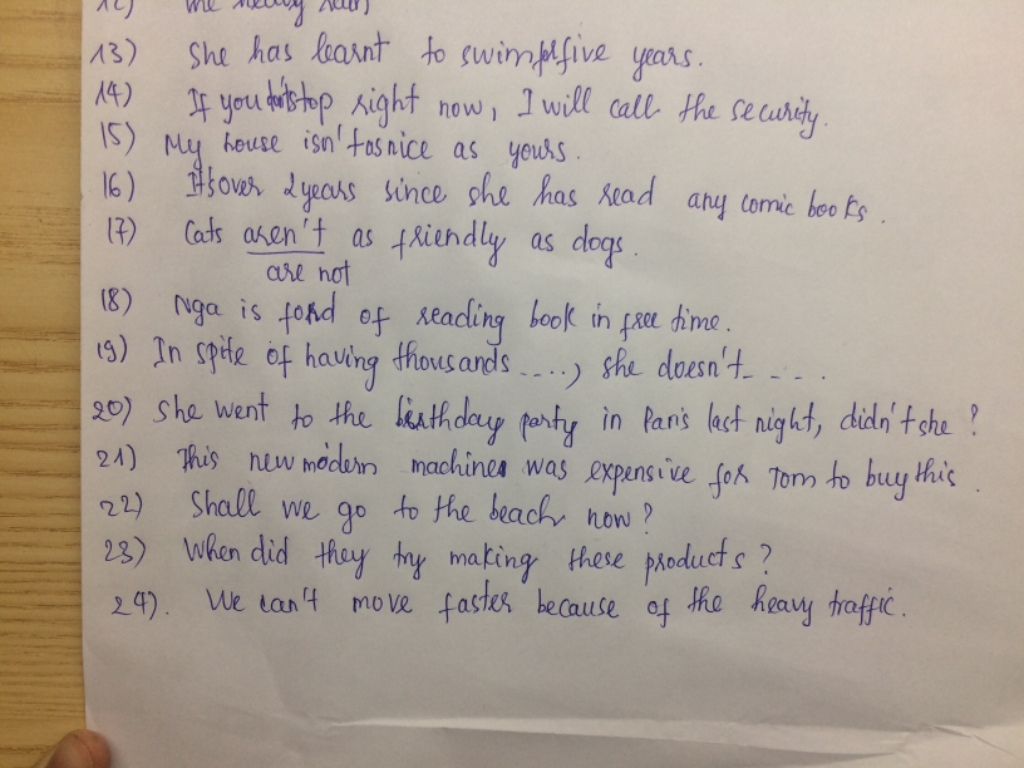 12) the heavy rain
13) She has learnt to swim for five years.
14) If you don't stop right now, I will call the security.
15) My house isn't as nice as yours.
16) It's over 2 years since she has read any comic books.
17) Cats aren't as friendly as dogs.
are not
18) Nga is fond of reading book in free time.
19) In spite of having thousands ...., she doesn't ....
20) She went to the birthday party in Paris last night, didn't she?
21) This new modern machine was expensive for Tom to buy this.
22) Shall we go to the beach now?
23) When did they try making these products?
24). We can't move faster because of the heavy traffic.